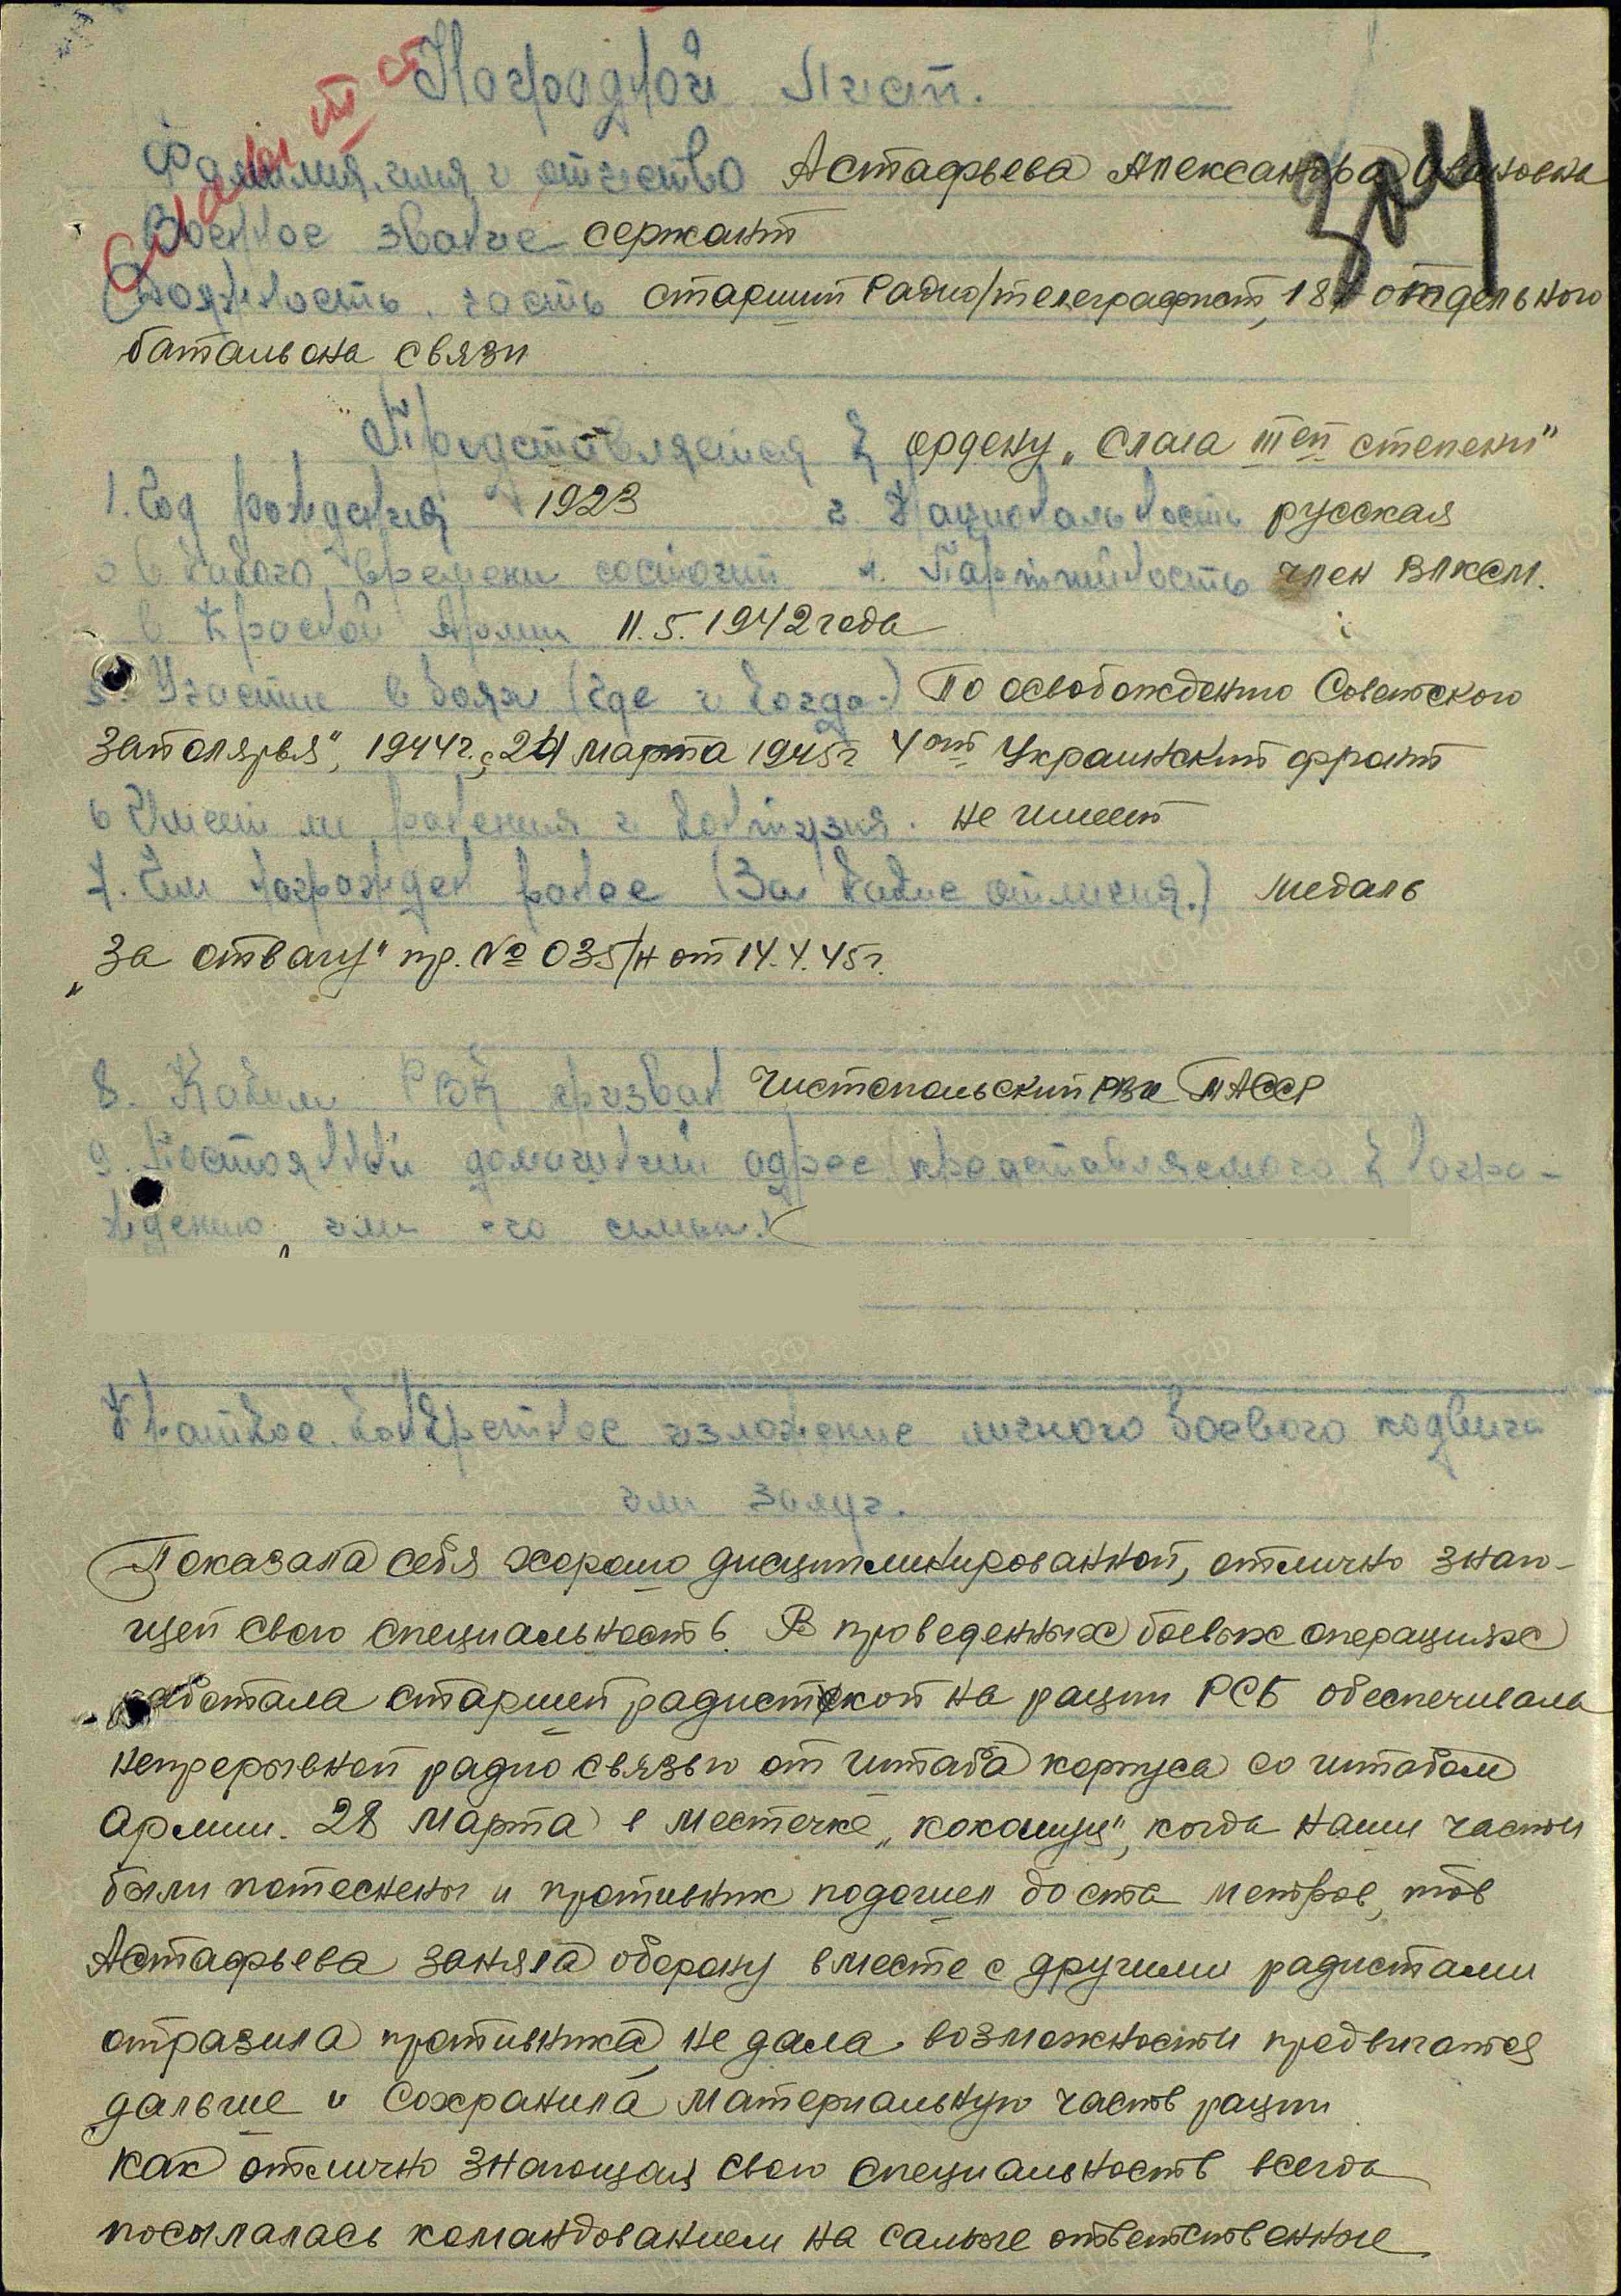 Наградной Лист.
Слава III ст
Фамилия, имя и отчество Астафьева Александра Ивановна
304
Военное звание сержант
Должность, часть старший радио/телеграфист, 187 отдельного
батальона связи
Представляется к ордену „Слава III ей степени"
1. Год рождения 1923 2. Национальность русская
3. С какого времени состоит 4. Партийность член ВЛКСМ.
в Красной Армии 11.5.1942 года
5. Участие в боях (где и когда) По освобождению Советского
Заполярья", 1944г. с 24 марта 1945г 4ый Украинский фронт
6 Имеет ли ранения и контузия. не имеет
7. Чем награжден ранее (За какие отличия.) медаль
„За отвагу" пр. № 035/н от 14.4.45г.
8. Каким РВК призван Чистопольский РВК ТАССР
9. Постоянный домашний адрес представляемого к награ-
ждению, или его семьи.
Краткое конкретное изложение личного боевого подвига
или заслуг.
Показала себя хорошо дисциплинированной, отлично знаю-
щей свою специальность. В проведенных боевых операциях
работала старшей радисткой на рации РСБ обеспечивала
непрерывной радио связью от штаба корпуса со штабом
Армии. 28 марта в местечке „Кокошуц", когда наши части
были потеснены и противник подошел до ста метров, тов
Астафьева заняла оборону вместе с другими радистами
отразила противника, не дала возможности продвигатся
дальше и сохранила материальную часть рации
как отлично знающая свою специальность всегда
посылалась командованием на самые ответственные